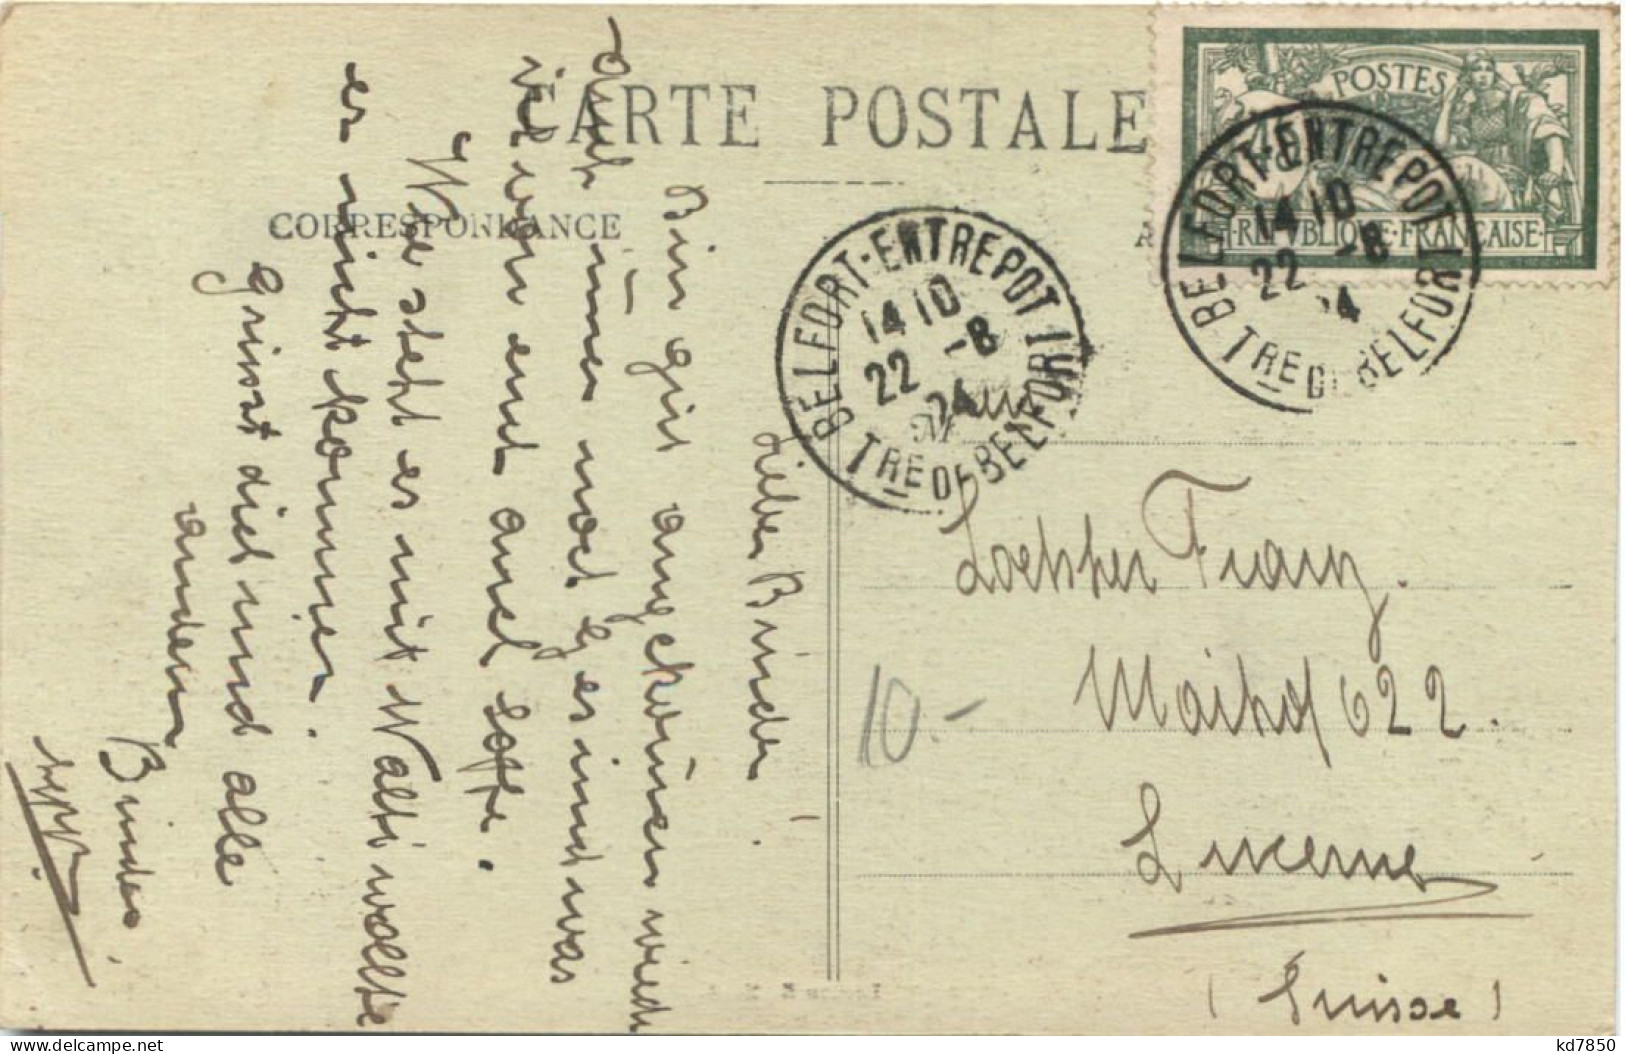 CARTE POSTALE
CORRESPONDANCE
POSTES
REPUBLIQUE FRANCAISE
BELFORT-ENTREPOT
14 10
22 -8
24
TRE DE BELFORT
BELFORT-ENTREPOT
14 10
22 -8
24
TRE DE BELFORT
Lieber Bruder.
Bin gut angekommen wieder
auch immer noch gesund was
ich von euch auch hoffe.
Wie steht es mit Walti wollte
er nicht kommen.
Grüsst dich und alle
andern
Bruder
Loepfer Franz.
Maihof 622.
Lucerne
(Suisse)
10.-
kd7850